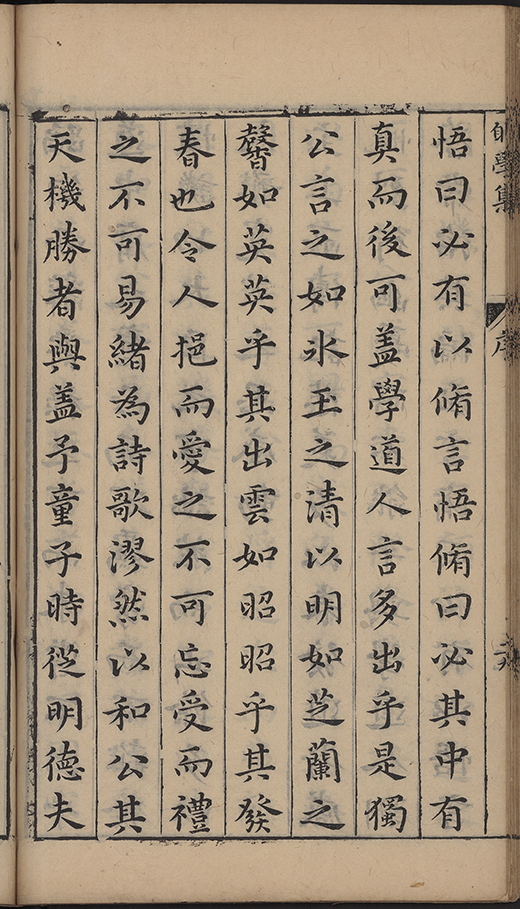 學集
序
悟曰必有以脩言悟脩曰必其中有
真而後可盖學道人言多出乎是獨
公言之如氷玉之清以明如芝蘭之
馨如英英乎其出雲如昭昭乎其發
春也令人挹而愛之不可忘受而禮
之不可易緒為詩歌漻然以和公其
天機勝者與盖予童子時從明德夫